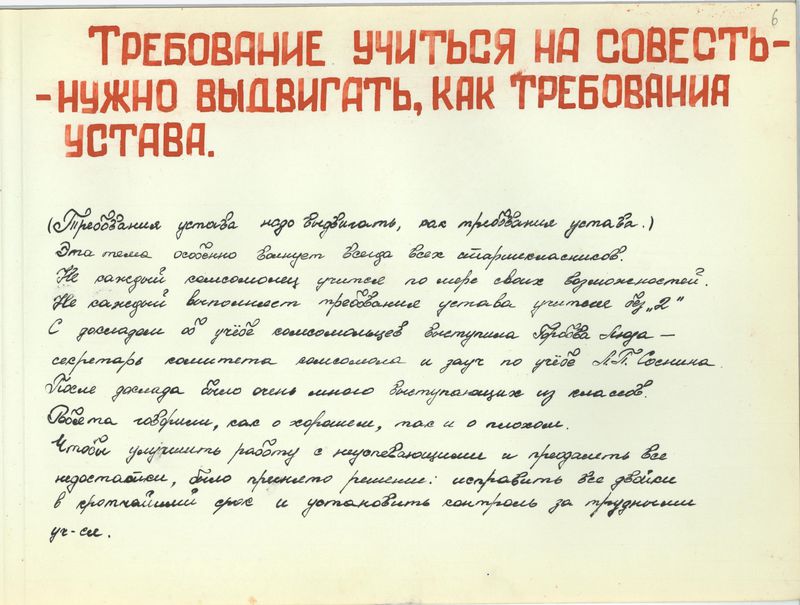 6
ТРЕБОВАНИЕ УЧИТЬСЯ НА СОВЕСТЬ-
-НУЖНО ВЫДВИГАТЬ, КАК ТРЕБОВАНИЯ
УСТАВА.
(Требования устава надо выдвигать, как требования устава.)
Эта тема особенно волнует всегда всех старшекласников.
Не каждый комсомолец учится по мере своих возможностей.
Не каждый выполняет требования устава учиться без „2"
С докладом об учёбе комсомольцев выступила Горбова Люда —
секретарь комитета комсомола и зауч по учёбе Л.П. Соснина.
После доклада было очень много выступающих из классов.
Ребята говорили, как о хорошем, так и о плохом.
Чтобы улучшить работу с неуспевающими и преодалеть все
недостатки, было принято решение: исправить все двойки
в кротчайший срок и установить контроль за трудными
уч-ся.